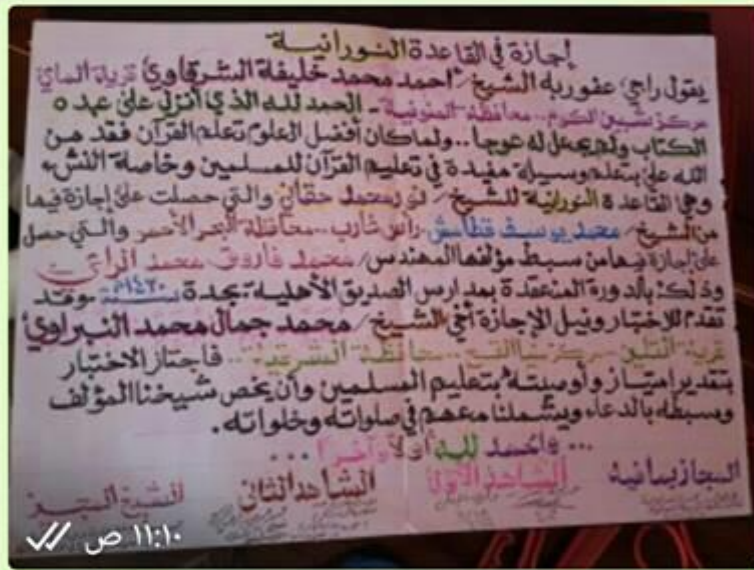 إجازة في القاعدة النورانية
يقول راجي عفو ربه الشيخ/ أحمد محمد خليفة الشرقاوي قرية الماي
مركز شبين الكوم.. محافظة المنوفية - الحمد لله الذي أنزل على عبده
الكتاب ولم يجعل له عوجا.. ولما كان أفضل العلوم تعلم القرآن فقد من
الله علي بتعلم وسيلة مفيدة في تعليم القرآن للمسلمين وخاصة النشء
وهي القاعدة النورانية للشيخ/ نور محمد حقاني والتي حصلت على إجازة فيها
من الشيخ/ محمد يوسف قطامش - راس غارب - محافظة البحر الأحمر والتي حصل
على إجازة فيها من سبط مؤلفها المهندس/ محمد فاروق محمد الراعي
وذلك بالدورة المنعقدة بمدارس الصديق الأهلية بجدة سنة ١٤٣٠ه وقد
تقدم للاختبار ونيل الإجازة أخي الشيخ/ محمد جمال محمد النبراوي
قرية - مركز منيا القمح.. محافظة الشرقية.. فاجتاز الاختبار
بتقدير امتياز وأوصيته بتعليم المسلمين وأن يخص شيخنا المؤلف
وسبطه بالدعاء ويشملنا معهم في صلواته وخلواته.
... والحمد لله أولا وآخرا ...
المجاز بمافيه الشاهد الأول الشاهد الثاني الشيخ المجيز
١١:١٠ ص